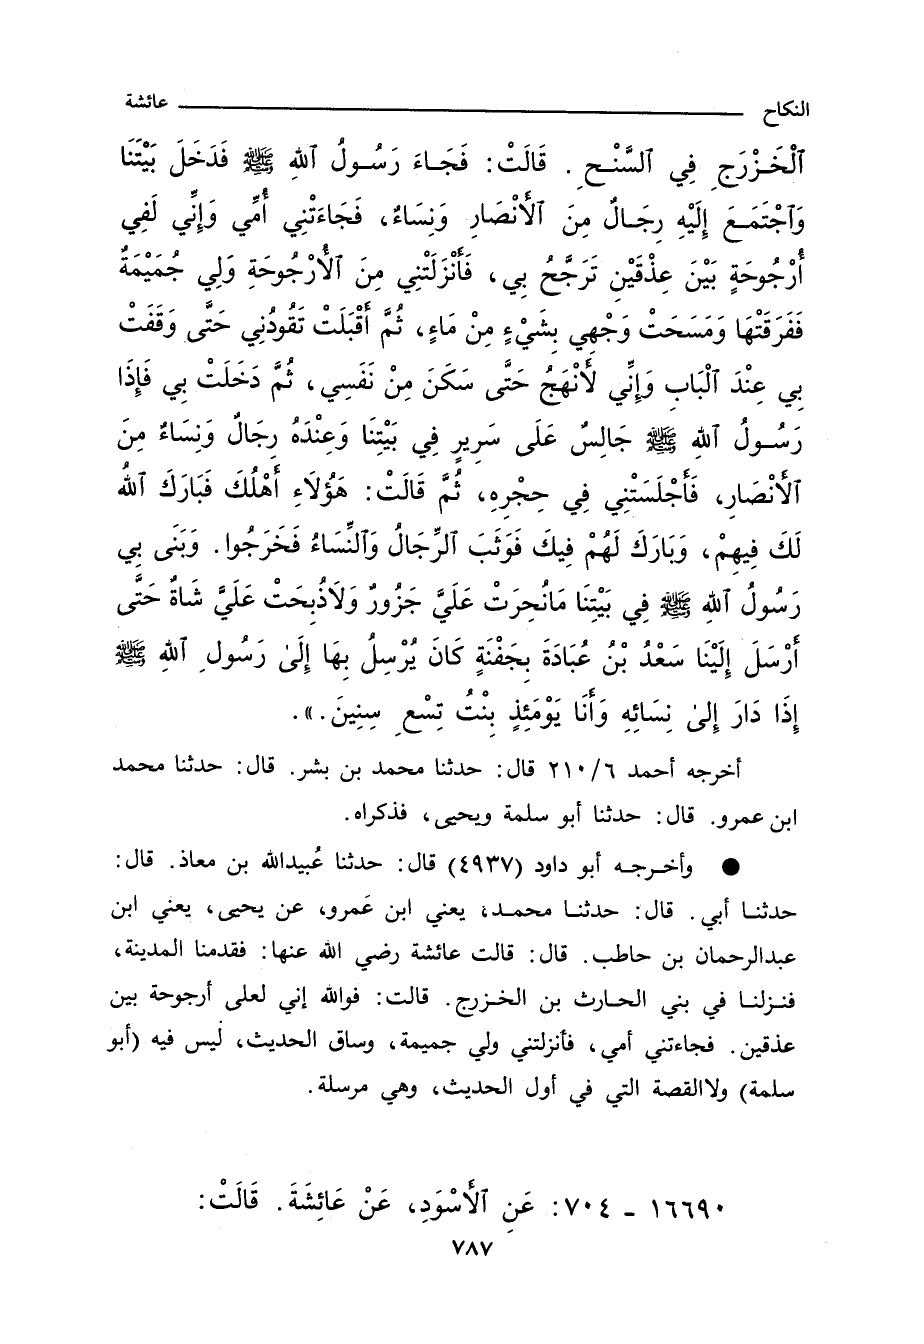 النكاح ــــــــ عائشة
ٱلْخَزْرَجِ فِي ٱلسَّنْحِ. قَالَتْ: فَجَاءَ رَسُولُ ٱللهِ ﷺ فَدَخَلَ بَيْتَنَا
وَٱجْتَمَعَ إِلَيْهِ رِجَالٌ مِنَ ٱلأَنْصَارِ وَنِسَاءٌ، فَجَاءَتْنِي أُمِّي وَإِنِّي لَفِي
أُرْجُوحَةٍ بَيْنَ عِذْقَيْنِ تَرَجَّحُ بِي، فَأَنْزَلَتْنِي مِنَ ٱلأُرْجُوحَةِ وَلِي جُمَيْمَةٌ
فَفَرَقَتْهَا وَمَسَحَتْ وَجْهِي بِشَيْءٍ مِنْ مَاءٍ، ثُمَّ أَقْبَلَتْ تَقُودُنِي حَتَّى وَقَفَتْ
بِي عِنْدَ ٱلْبَابِ وَإِنِّي لَأَنْهَجُ حَتَّى سَكَنَ مِنْ نَفَسِي، ثُمَّ دَخَلَتْ بِي فَإِذَا
رَسُولُ ٱللهِ ﷺ جَالِسٌ عَلَى سَرِيرٍ فِي بَيْتِنَا وَعِنْدَهُ رِجَالٌ وَنِسَاءٌ مِنَ
ٱلأَنْصَارِ، فَأَجْلَسَتْنِي فِي حِجْرِهِ، ثُمَّ قَالَتْ: هَؤُلَاءِ أَهْلُكَ فَبَارَكَ ٱللهُ
لَكَ فِيهِمْ، وَبَارَكَ لَهُمْ فِيكَ فَوَثَبَ ٱلرِّجَالُ وَٱلنِّسَاءُ فَخَرَجُوا. وَبَنَى بِي
رَسُولُ ٱللهِ ﷺ فِي بَيْتِنَا مَانُحِرَتْ عَلَيَّ جَزُورٌ وَلَاذُبِحَتْ عَلَيَّ شَاةٌ حَتَّى
أَرْسَلَ إِلَيْنَا سَعْدُ بْنُ عُبَادَةَ بِجَفْنَةٍ كَانَ يُرْسِلُ بِهَا إِلَىٰ رَسُولِ ٱللهِ ﷺ
إِذَا دَارَ إِلَىٰ نِسَائِهِ وَأَنَا يَوْمَئِذٍ بِنْتُ تِسْعِ سِنِينَ.».
أخرجه أحمد ٢١٠/٦ قال: حدثنا محمد بن بشر. قال: حدثنا محمد
ابن عمرو. قال: حدثنا أبو سلمة ويحيى، فذكراه.
● وأخرجه أبو داود (٤٩٣٧) قال: حدثنا عُبيدالله بن معاذ. قال:
حدثنا أبي. قال: حدثنا محمد، يعني ابن عَمرو، عن يحيى، يعني ابن
عبدالرحمان بن حاطب. قال: قالت عائشة رضي الله عنها: فقدمنا المدينة،
فنزلنا في بني الحارث بن الخزرج. قالت: فوالله إني لعلى أرجوحة بين
عذقين. فجاءتني أمي، فأنزلتني ولي جميمة، وساق الحديث، ليس فيه (أبو
سلمة) ولاالقصة التي في أول الحديث، وهي مرسلة.
١٦٦٩٠ - ٧٠٤: عَنِ ٱلأَسْوَدِ، عَنْ عَائِشَةَ. قَالَتْ:
٧٨٧